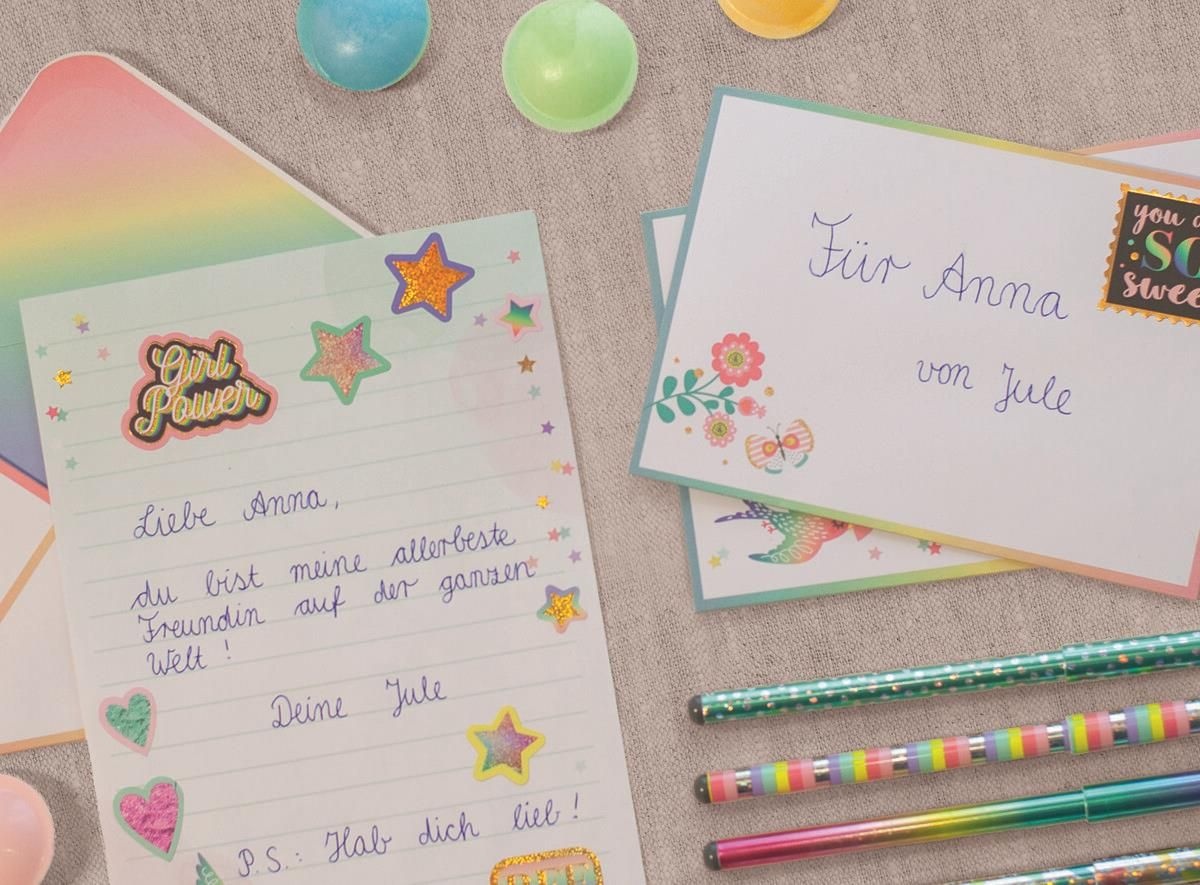 Girl
Power
Liebe Anna,
du bist meine allerbeste
Freundin auf der ganzen
Welt!
Deine Jule
P.S.: Hab dich lieb!
Für Anna
von Jule
you
SO